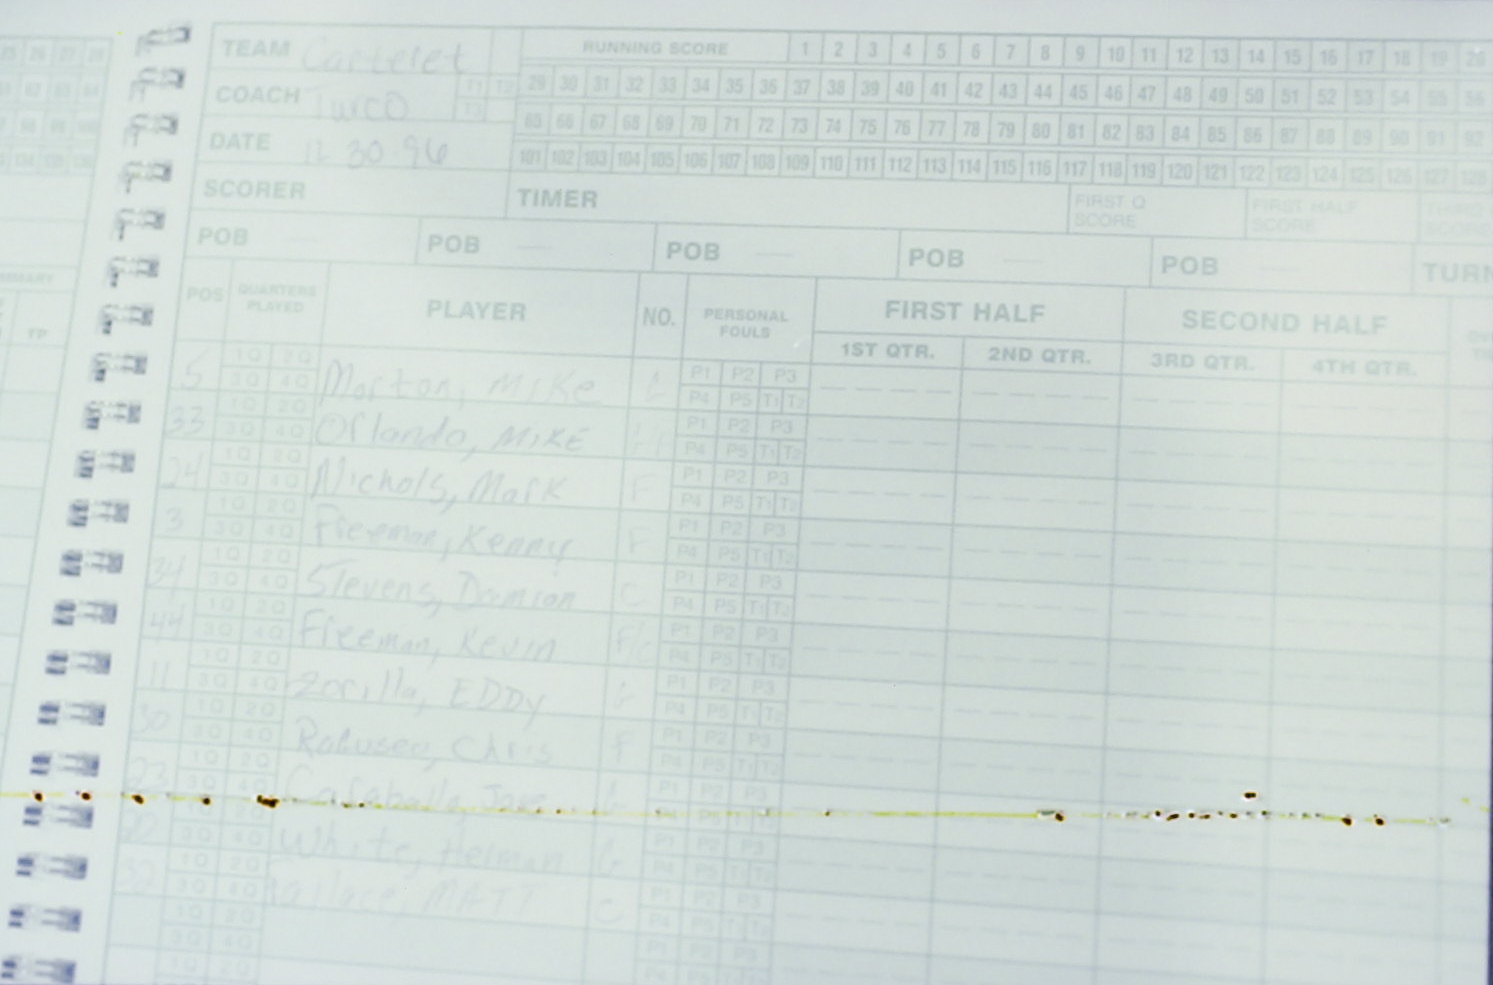 TEAM Carteret RUNNING SCORE 1 2 3 4 5 6 7 8 9 10 11 12 13 14 15 16 17 18 19 20
COACH Turco T1 T2 T3 29 30 31 32 33 34 35 36 37 38 39 40 41 42 43 44 45 46 47 48 49 50 51 52 53 54 55 56
65 66 67 68 69 70 71 72 73 74 75 76 77 78 79 80 81 82 83 84 85 86 87 88 89 90 91 92
DATE 12 30-96 101 102 103 104 105 106 107 108 109 110 111 112 113 114 115 116 117 118 119 120 121 122 123 124 125 126 127 128
SCORER TIMER FIRST Q SCORE FIRST HALF SCORE THIRD SCORE
POB POB POB POB POB TURN
POS QUARTERS PLAYED PLAYER NO. PERSONAL FOULS FIRST HALF SECOND HALF
1ST QTR. 2ND QTR. 3RD QTR. 4TH QTR.
5 1Q 2Q 3Q 4Q Morton, MIKe P1 P2 P3 P4 P5 T1 T2
33 1Q 2Q 3Q 4Q Orlando, MIKE P1 P2 P3 P4 P5 T1 T2
24 1Q 2Q 3Q 4Q Nichols, Mark F P1 P2 P3 P4 P5 T1 T2
3 1Q 2Q 3Q 4Q Freeman, Kenny F P1 P2 P3 P4 P5 T1 T2
34 1Q 2Q 3Q 4Q Stevens, Damion C P1 P2 P3 P4 P5 T1 T2
44 1Q 2Q 3Q 4Q Freeman, Kevin F/C P1 P2 P3 P4 P5 T1 T2
11 1Q 2Q 3Q 4Q Zorilla, EDDy P1 P2 P3 P4 P5 T1 T2
30 1Q 2Q 3Q 4Q Chris F P1 P2 P3 P4 P5 T1 T2
23 1Q 2Q 3Q 4Q P1 P2 P3 P4 P5 T1 T2
20 1Q 2Q 3Q 4Q White, G P1 P2 P3 P4 P5 T1 T2
1Q 2Q 3Q 4Q MATT C P1 P2 P3 P4 P5 T1 T2
1Q 2Q 3Q 4Q P1 P2 P3 P4 P5 T1 T2